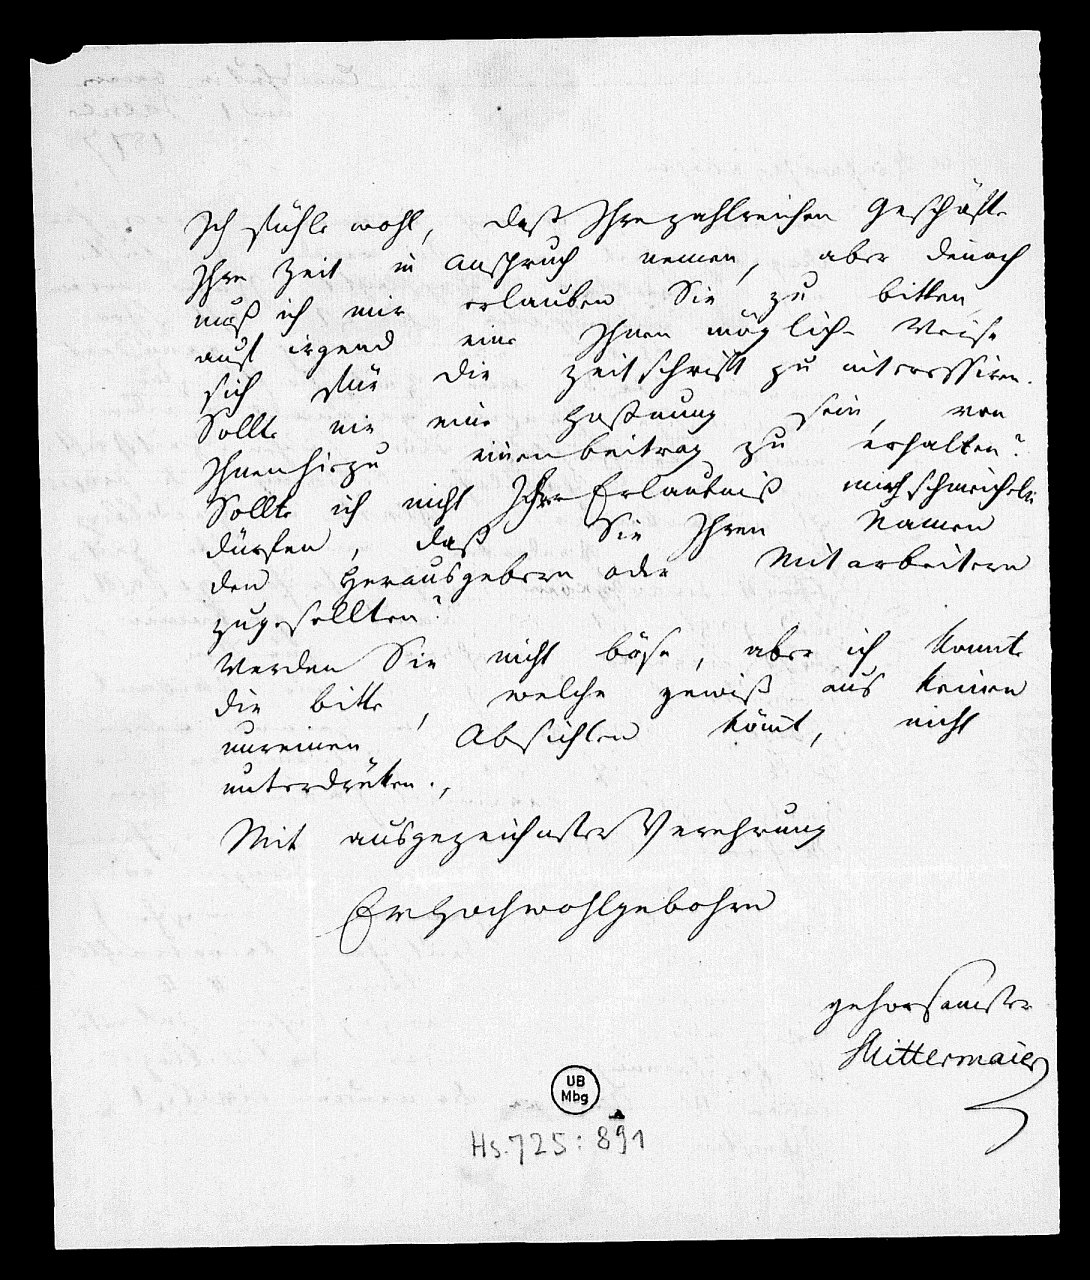 Ich fühle wohl, daß Ihre zahlreichen Geschäfte
Ihre Zeit in Anspruch nemen, aber denoch
muß ich mir erlauben Sie zu bitten,
auf irgend eine Ihnen mögliche Weise
sich für die Zeitschrift zu interessiren.
Sollte mir eine Hoffnung sein, von
Ihnen hiezu einen beitrag zu erhalten?
Sollte ich nicht Ihre Erlaubniß mich schmeicheln
dürfen, daß Sie Ihren Namen
den Herausgebern oder Mitarbeitern
zugesellten?
Werden Sie nicht böse, aber ich konnte
die bitte, welche gewiß aus keinen
unreinen Absichten kömt, nicht
unterdrüken.,
Mit ausgezeichneter Verehrung
Ew Hochwohlgebohrn
gehorsamster
Mittermaier
UB
Mbg
Hs. 725: 891